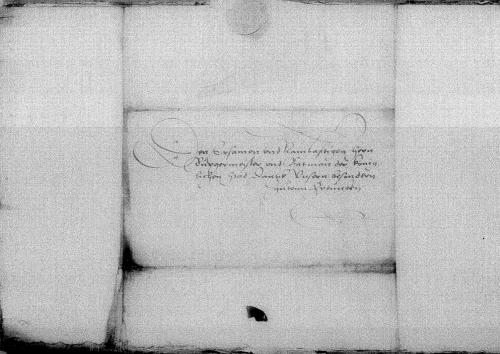 Den Ersamen und Namhafftigen Hern
Burgermeister und Ratman der König
lichen Stad Danzk Unsern besundern
gutenn Freundenn